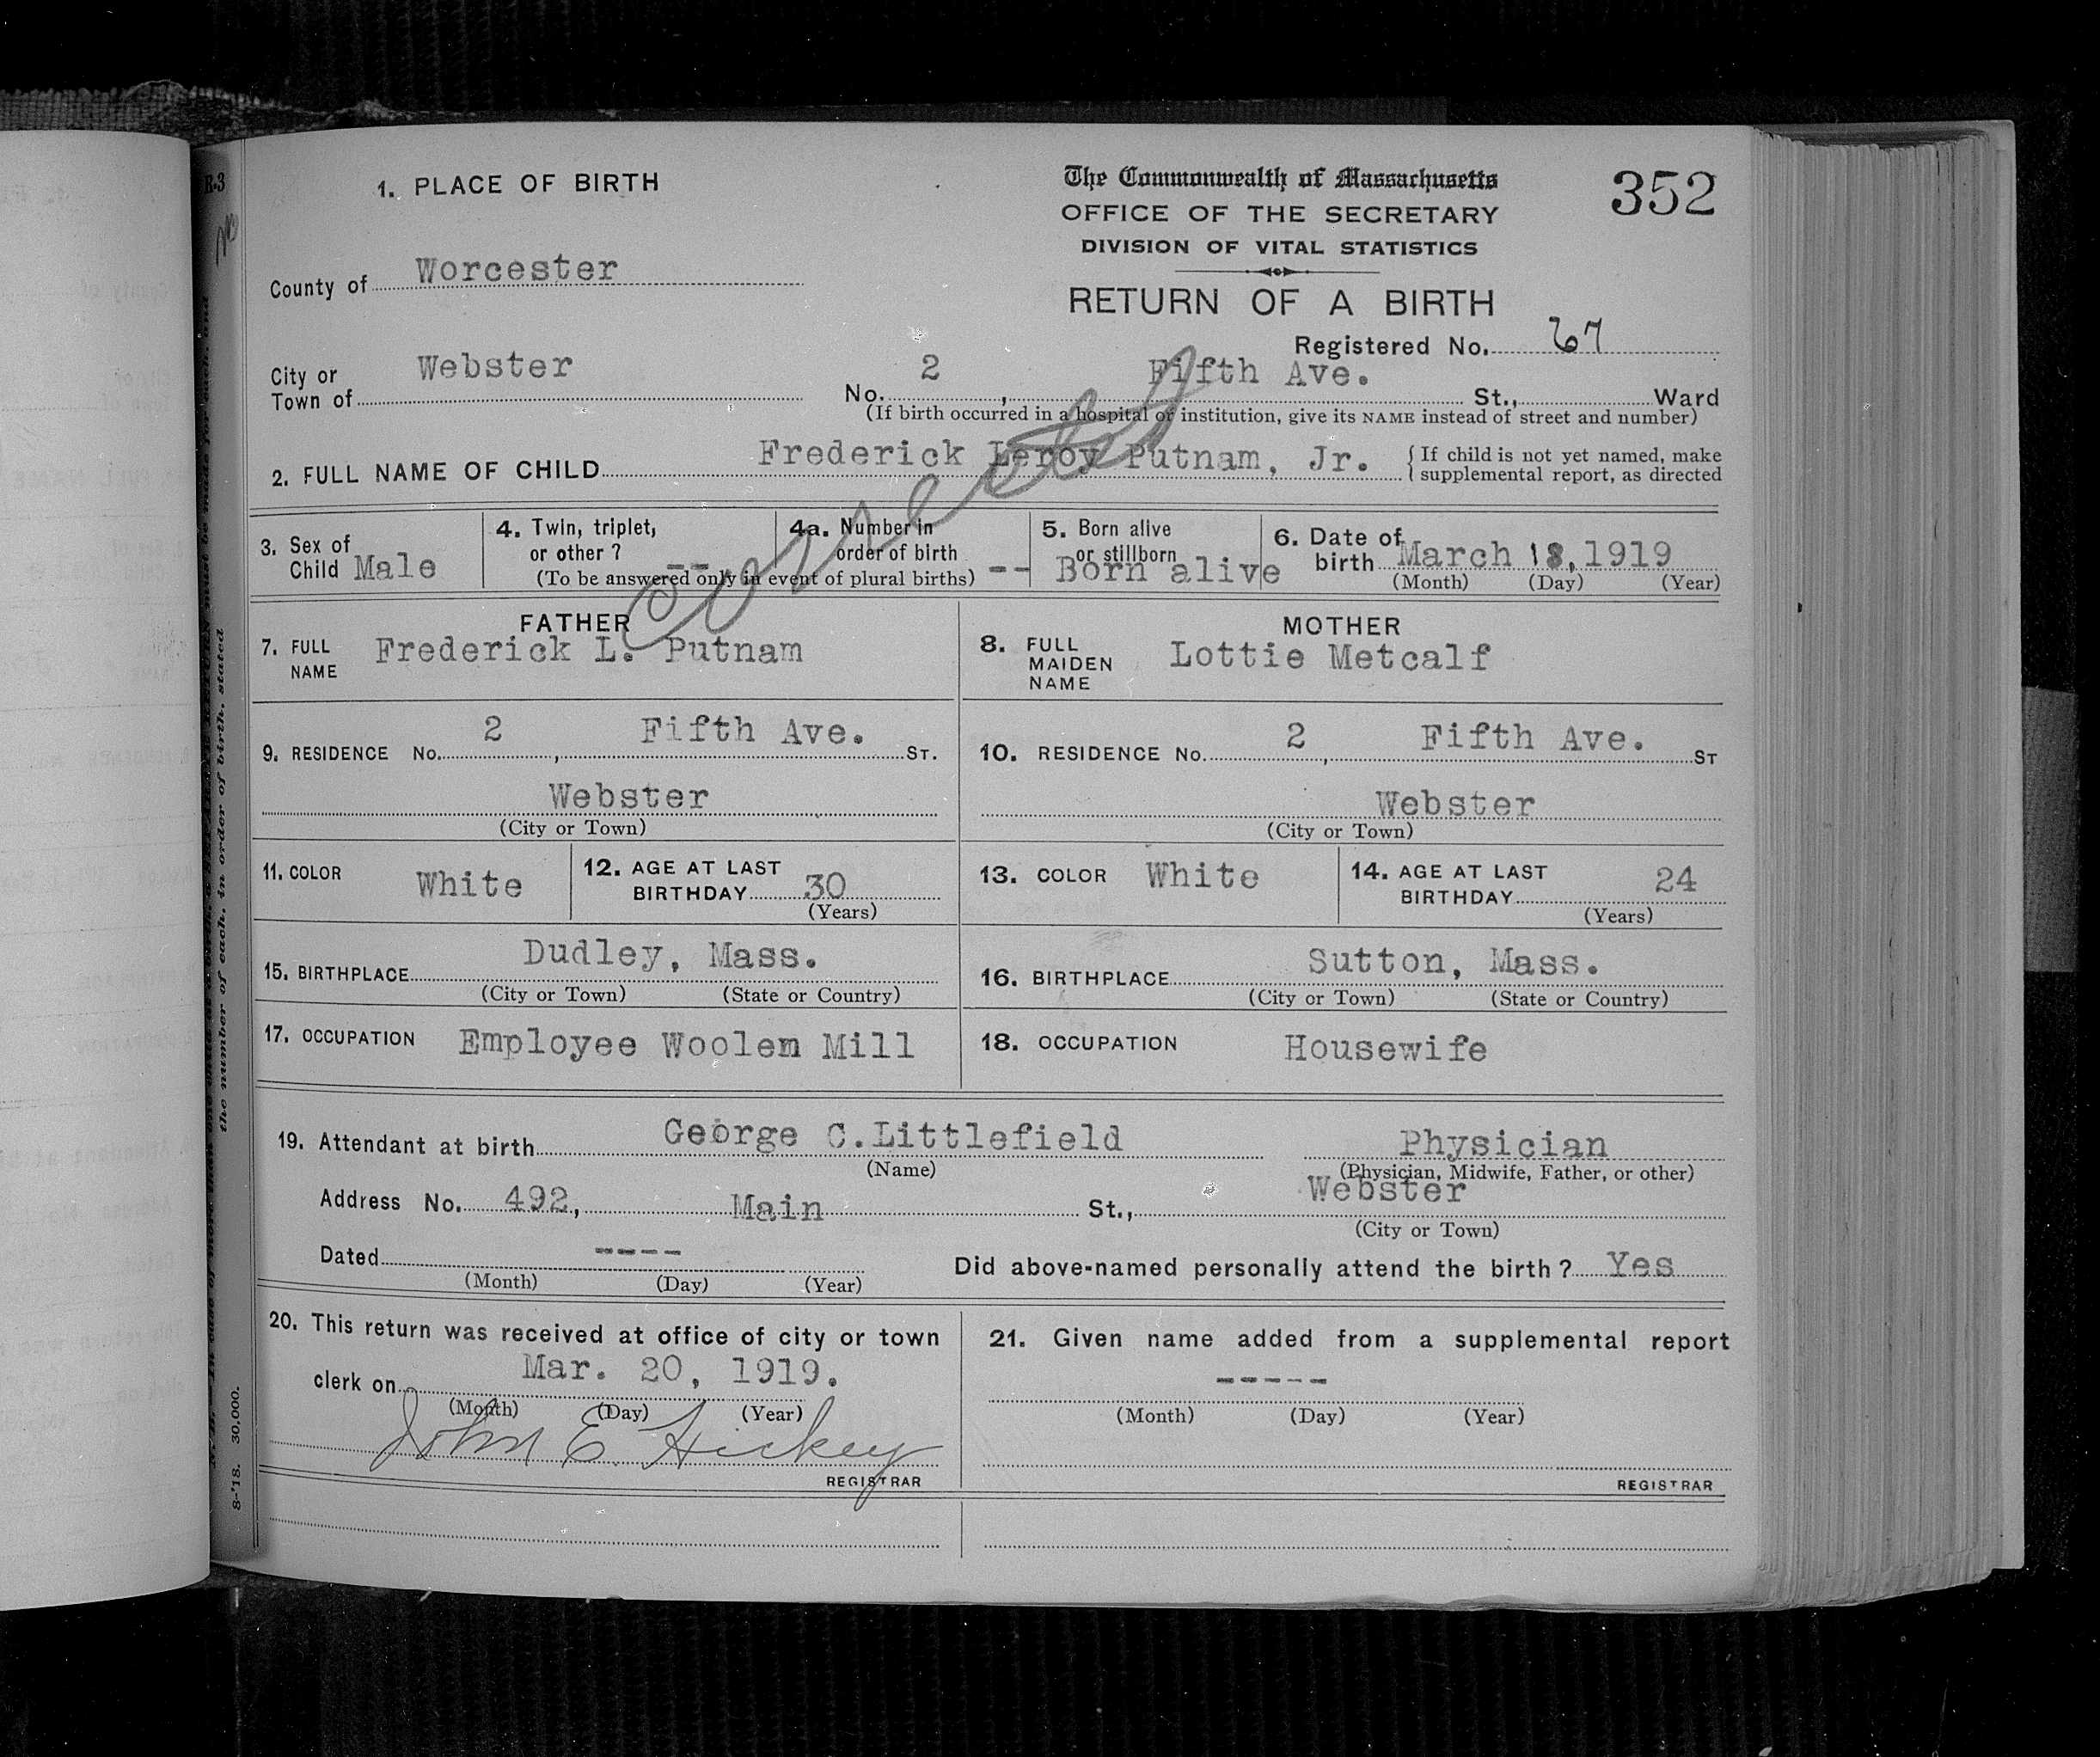 R-3
1. PLACE OF BIRTH
The Commonwealth of Massachusetts
352
OFFICE OF THE SECRETARY
DIVISION OF VITAL STATISTICS
County of Worcester
RETURN OF A BIRTH
Registered No. 67
City or Town of Webster No. 2, Fifth Ave. St., Ward
(If birth occurred in a hospital or institution, give its NAME instead of street and number)
Corrected
2. FULL NAME OF CHILD Frederick Leroy Putnam, Jr. { If child is not yet named, make
supplemental report, as directed
3. Sex of Child Male
4. Twin, triplet, or other? --
4a. Number in order of birth --
(To be answered only in event of plural births)
5. Born alive or stillborn Born alive
6. Date of birth March 18, 1919
(Month) (Day) (Year)
FATHER
7. FULL NAME Frederick L. Putnam
MOTHER
8. FULL MAIDEN NAME Lottie Metcalf
9. RESIDENCE No. 2, Fifth Ave. ST.
Webster
(City or Town)
10. RESIDENCE No. 2, Fifth Ave. ST
Webster
(City or Town)
11. COLOR White
12. AGE AT LAST BIRTHDAY 30
(Years)
13. COLOR White
14. AGE AT LAST BIRTHDAY 24
(Years)
15. BIRTHPLACE Dudley, Mass.
(City or Town) (State or Country)
16. BIRTHPLACE Sutton, Mass.
(City or Town) (State or Country)
17. OCCUPATION Employee Woolen Mill
18. OCCUPATION Housewife
19. Attendant at birth George C. Littlefield Physician
(Name) (Physician, Midwife, Father, or other)
Address No. 492, Main St., Webster
(City or Town)
Dated ----
(Month) (Day) (Year)
Did above-named personally attend the birth? Yes
20. This return was received at office of city or town
clerk on Mar. 20, 1919.
(Month) (Day) (Year)
John E. Hickey
REGISTRAR
21. Given name added from a supplemental report
-----
(Month) (Day) (Year)
REGISTRAR
the number of each, in order of birth, stated
8-'18. 30,000.